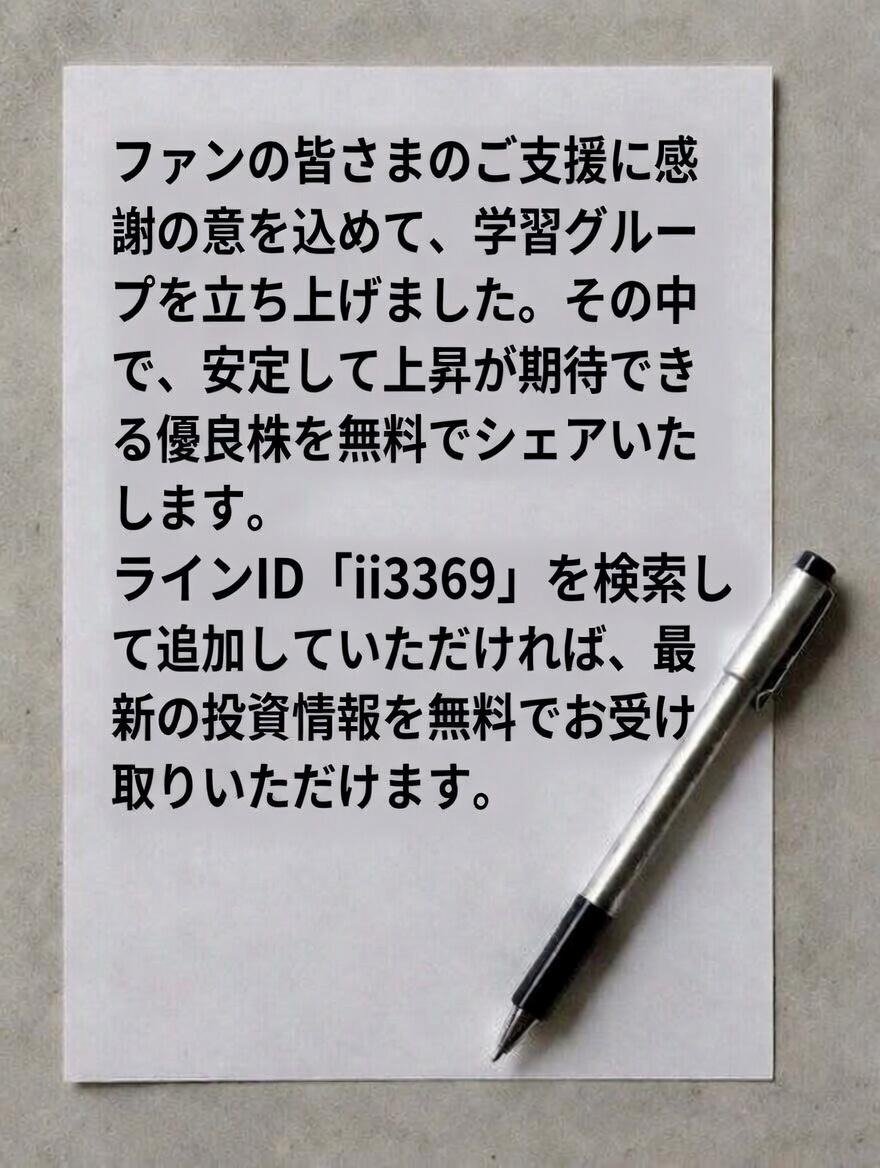 ファンの皆さまのご支援に感
謝の意を込めて、学習グルー
プを立ち上げました。その中
で、安定して上昇が期待でき
る優良株を無料でシェアいた
します。
ラインID「ii3369」を検索し
て追加していただければ、最
新の投資情報を無料でお受け
取りいただけます。